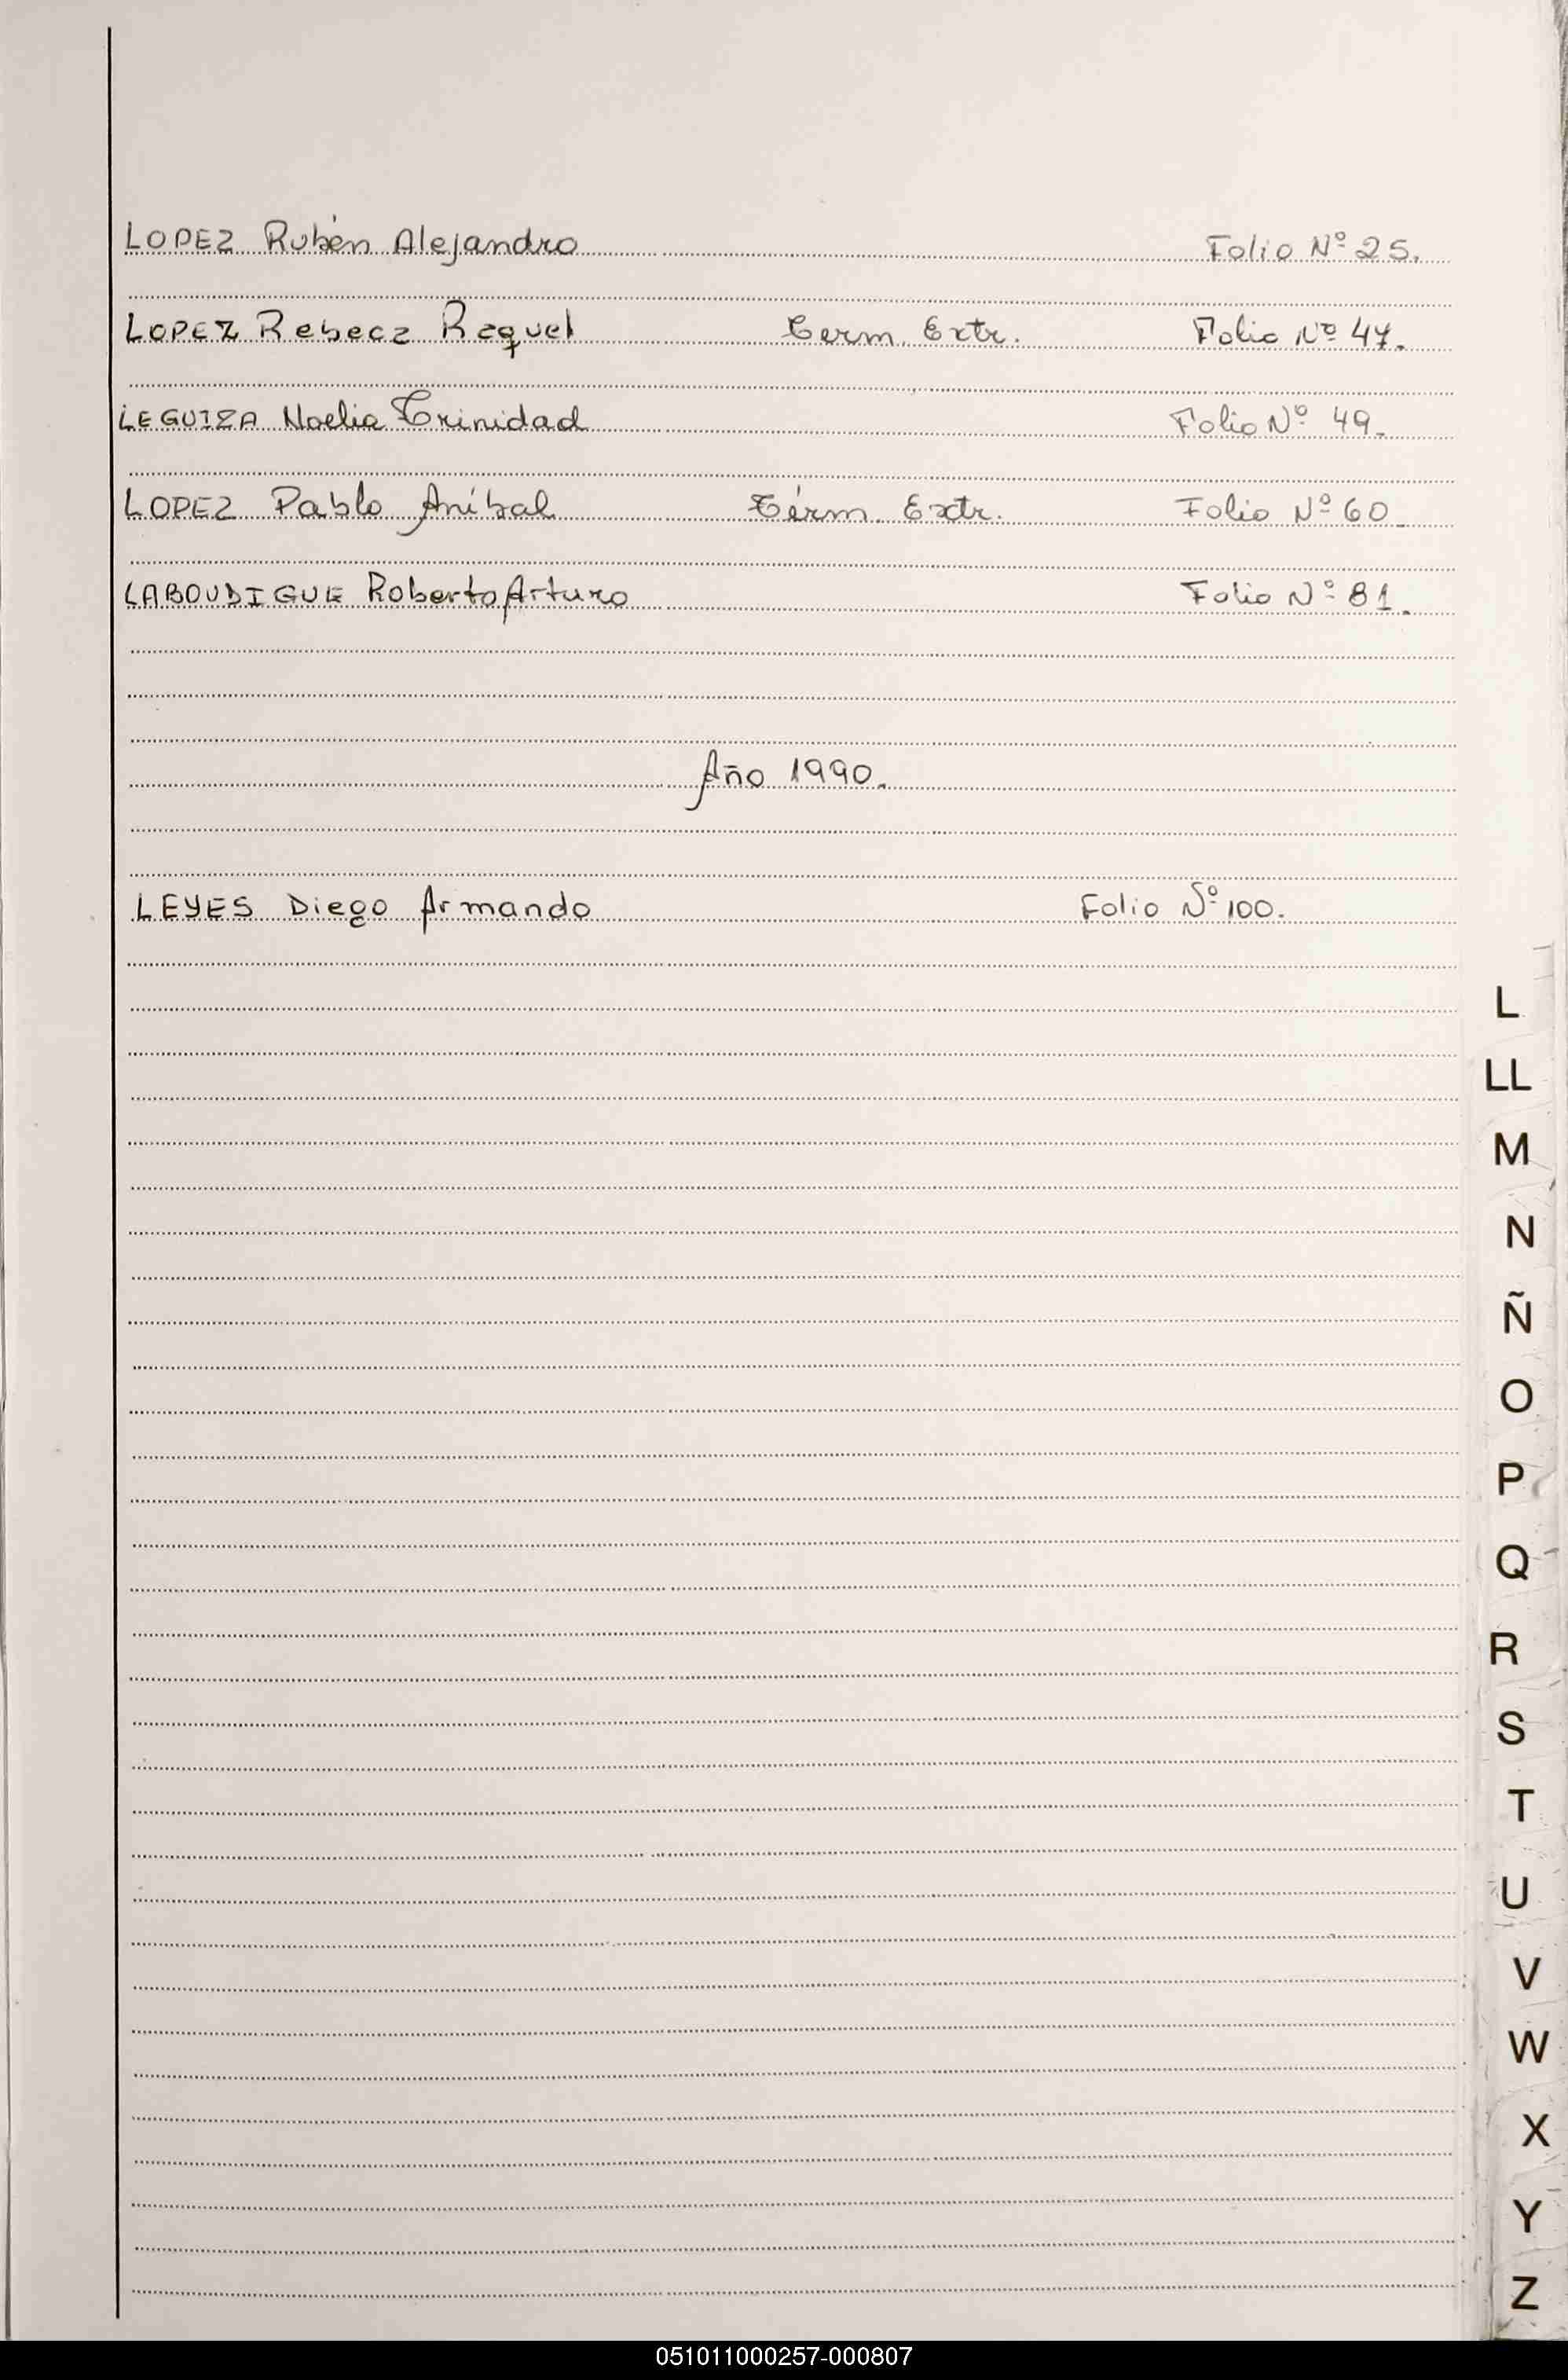 LOPEZ Rubén Alejandro Folio Nº 25.
LOPEZ Rebeca Raquel Term. Extr. Folio Nº 47.
LEGUIZA Noelia Trinidad Folio Nº 49.
LOPEZ Pablo Aníbal Térm. Extr. Folio Nº 60.
LABOUDIGUE Roberto Arturo Folio Nº 81.
Año 1990.
LEYES Diego Armando Folio Nº 100.
L
LL
M
N
Ñ
O
P
Q
R
S
T
U
V
W
X
Y
Z
051011000257-000807